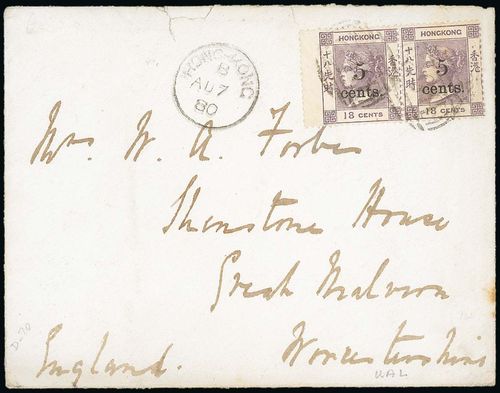 HONGKONG HONGKONG
十八先時 香港 十八先時 香港
5 5
cents. cents.
18 CENTS 18 CENTS
HONG-KONG
B
AU 7
80
Mrs W. A. Forbes
Shenstone House
Great Malvern
Worcestershire
England.
UAL